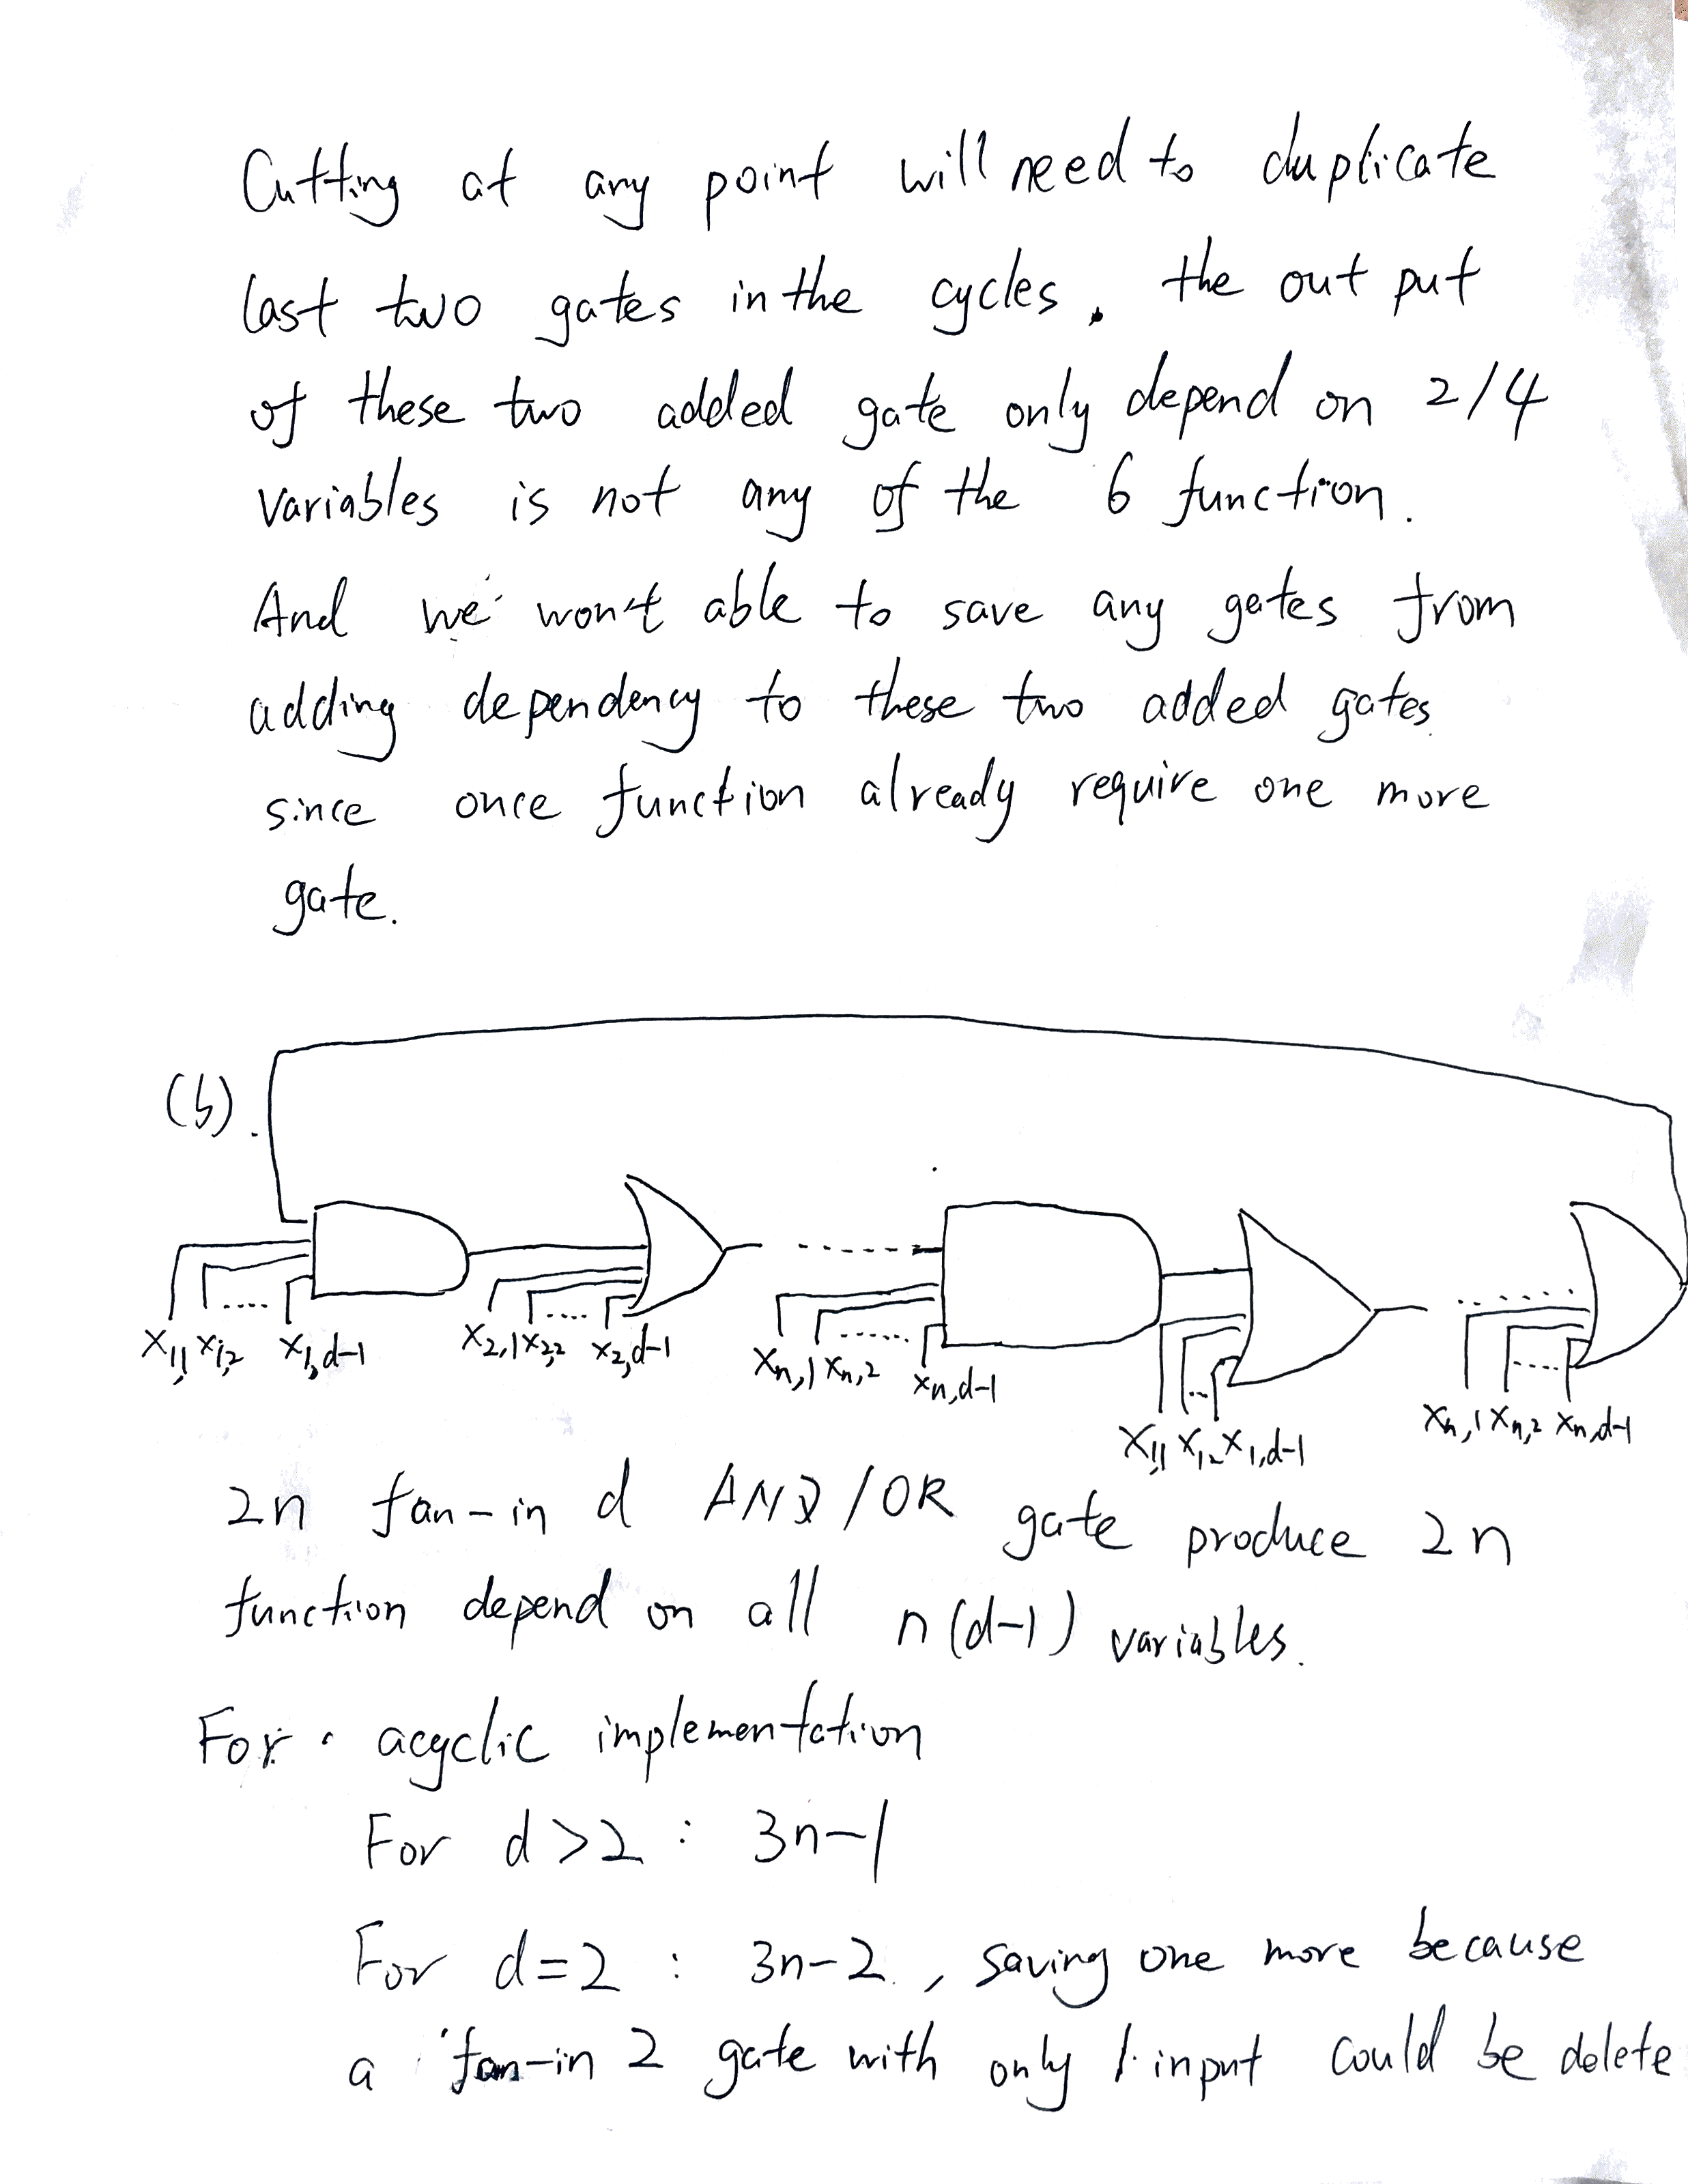 Cutting at any point will need to duplicate
last two gates in the cycles. the out put
of these two added gate only depend on 2/4
variables is not any of the 6 function.
And we won't able to save any gates from
adding dependency to these two added gates
since once function already require one more
gate.
(b).
x1,1 x1,2 x1,d-1 x2,1 x2,2 x2,d-1 xn,1 xn,2 xn,d-1
x1,1 x1,2 x1,d-1 xn,1 xn,2 xn,d-1
2n fan-in d AND/OR gate produce 2n
function depend on all n(d-1) variables.
For acyclic implementation
For d>2 : 3n-1
For d=2 : 3n-2, saving one more because
a fan-in 2 gate with only 1 input could be delete